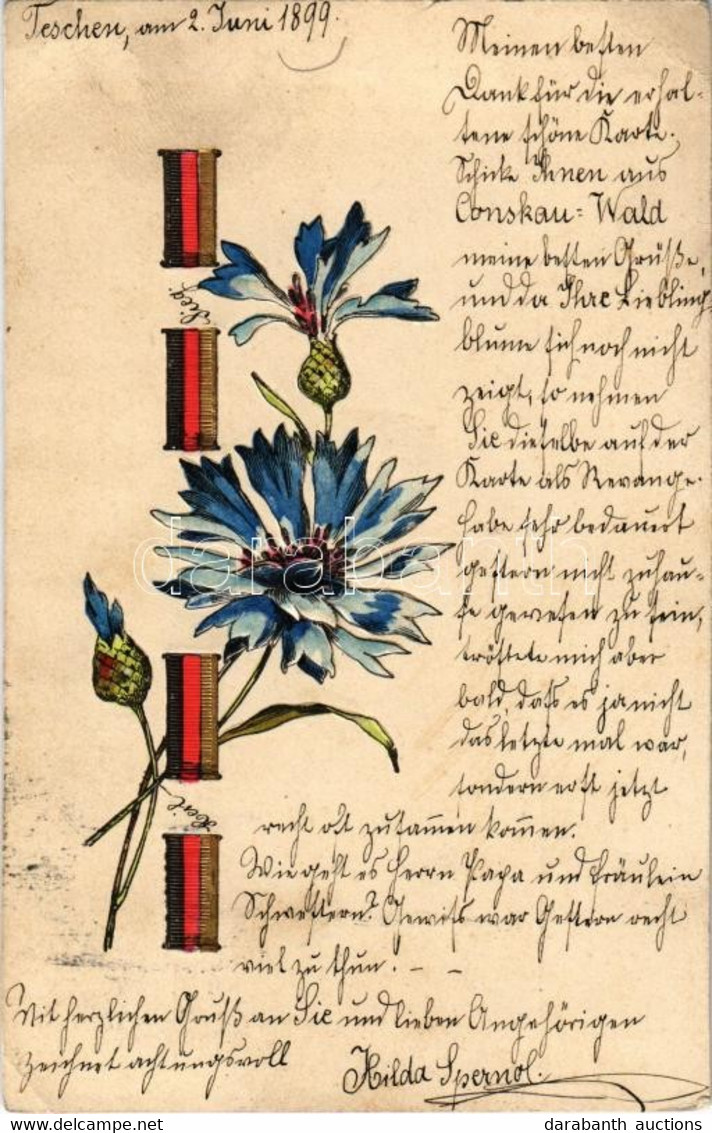 Teschen, am 2. Juni 1899.
Meinen besten
Dank für die erhal-
tene schöne Karte.
Schicke Ihnen aus
Conskau-Wald
meine besten Grüße,
und da Ihre Lieblings-
blume sich noch nicht
zeigt, so nehmen
Sie dieselbe auf der
Karte als Revange.
Habe sehr bedauert
gestern nicht zuhau-
se gewesen zu sein,
tröstete mich aber
bald, dass es ja nicht
das letzte mal war,
sondern erst jetzt
recht oft zusammen kommen.
Wie geht es Herrn Papa und Fräulein
Schwestern? Gewiss war Gestern recht
viel zu thun. – –
Mit herzlichen Gruß an Sie und lieben Angehörigen
zeichnet achtungsvoll
Hilda Spernol.
Sieg
Heil
darabanth
darabanth auctions